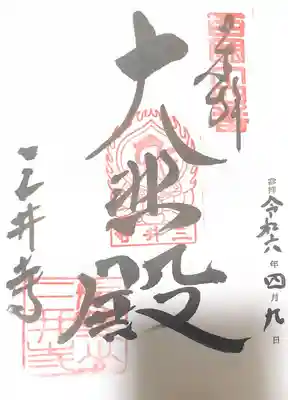 奉拝
参拝 令和六年四月九日
大悲殿
三井寺